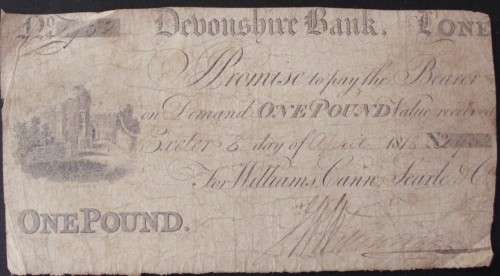 Devonshire Bank. £ONE
I Promise to pay the Bearer
on Demand ONE POUND Value received
Exeter 5 day of April 181
For Williams, Cann, Searle & C
ONE POUND.